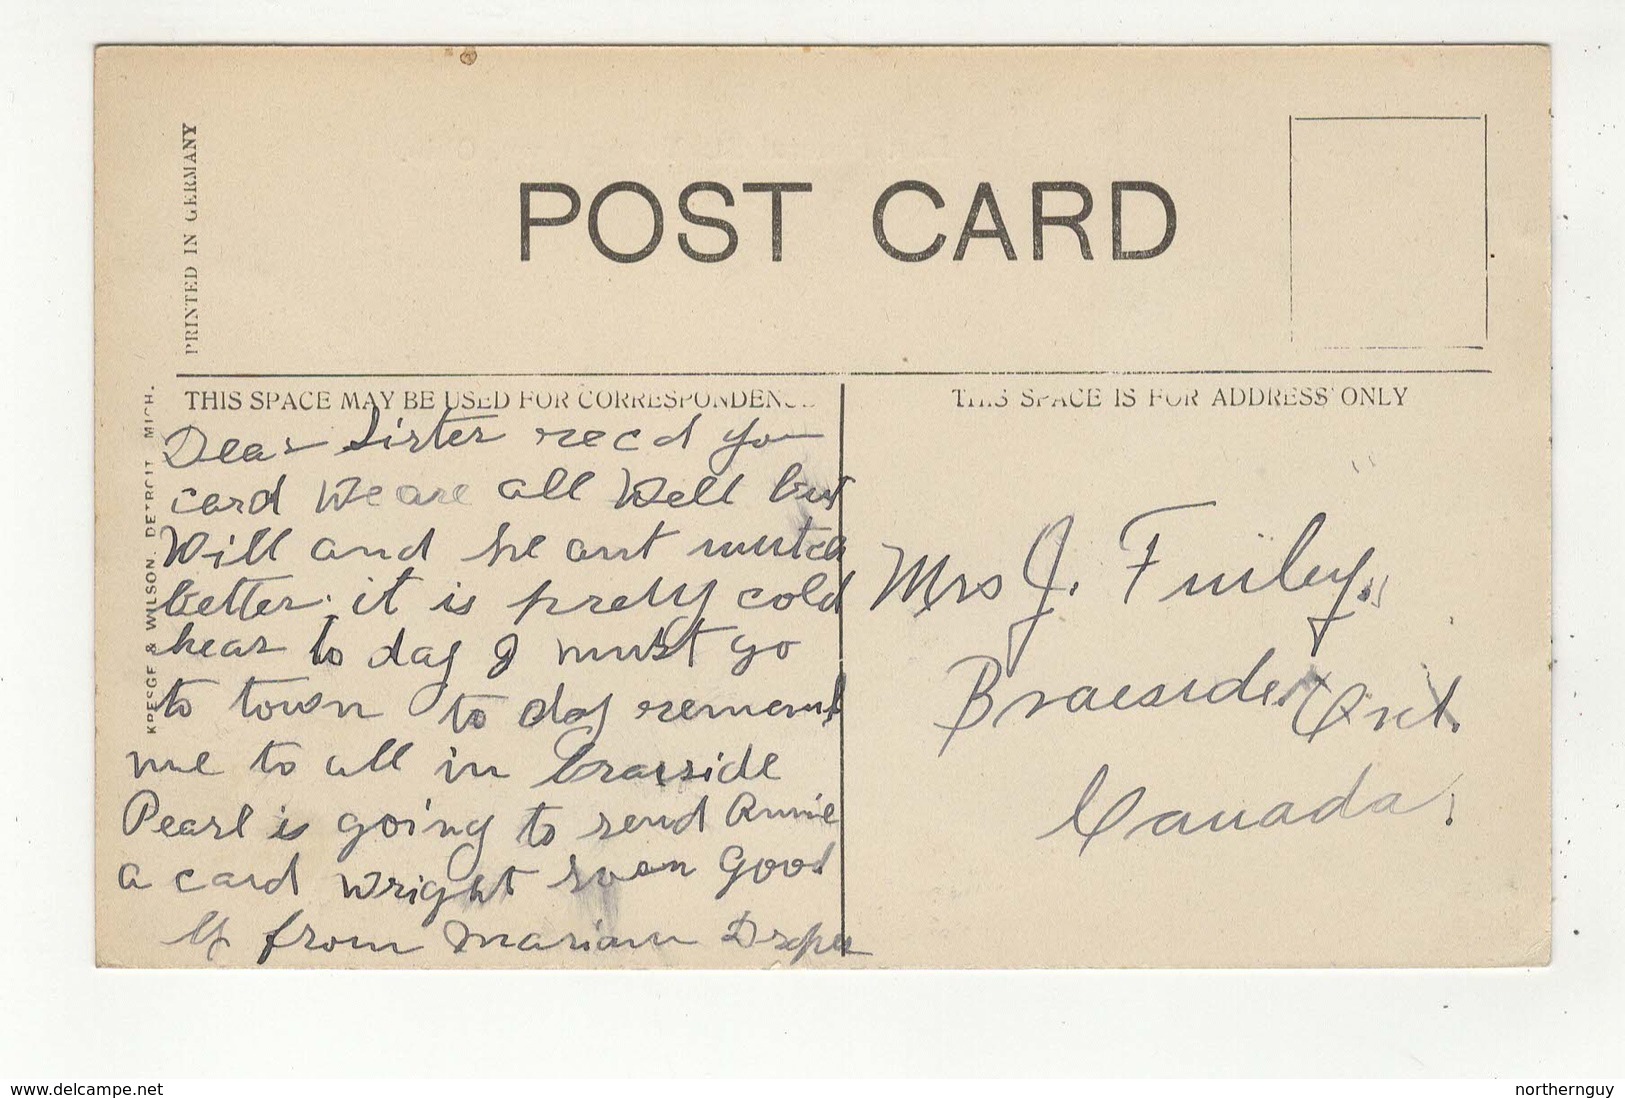 POST CARD
PRINTED IN GERMANY
KRESGE & WILSON. DETROIT MICH.
THIS SPACE MAY BE USED FOR CORRESPONDENCE
THIS SPACE IS FOR ADDRESS ONLY
Dear Sister recd you
card We are all Well but
Will and he ant mutch
better. it is prety cold
hear to day I must go
to town to day
me to all in Braeside
Pearl is going to send Annie
a card Wright soon Good
by from Mariam Draper
Mrs J. Finley.
Braeside. Ont.
Canada.
www.delcampe.net
northernguy